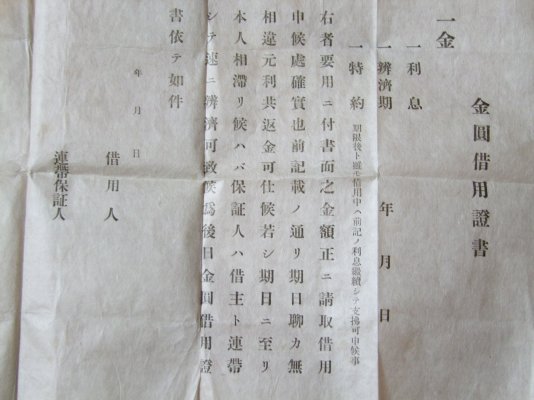 金圓借用證書
一金
一利息
一辨濟期 年 月 日
一特約 期限後ト雖モ借用中ハ前記ノ利息繼續シテ支拂可申候事
右者要用ニ付書面之金額正ニ請取借用
申候處確實也前記載ノ通リ期日聊カ無
相違元利共返金可仕候若シ期日ニ至リ
本人相滯リ候ハバ保証人ハ借主ト連帶
シテ速ニ辨濟可致候爲後日金圓借用證
書依テ如件
年 月 日
借用人
連帶保証人